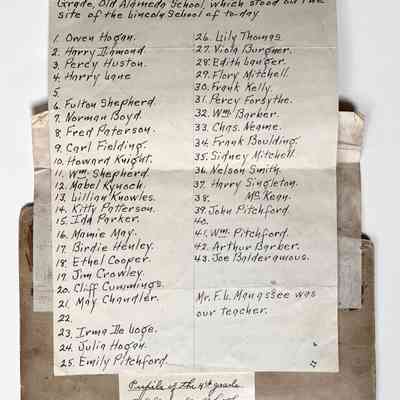 Grade, Old Alameda School, which stood on the
site of the Lincoln School of to-day
1. Owen Hogan.
2. Harry Diamond.
3. Percy Huston.
4. Harry Lane
5.
6. Fulton Shepherd.
7. Norman Boyd
8. Fred Paterson.
9. Carl Fielding.
10. Howard Knight.
11. Wm. Shepherd.
12. Mabel Kynoch.
13. Lillian Knowles.
14. Kitty Patterson.
15. Ida Parker.
16. Mamie May.
17. Birdie Henley.
18. Ethel Cooper.
19. Jim Crowley.
20. Cliff Cummings.
21. May Chandler.
22.
23. Irma De Loge.
24. Julia Hogan.
25. Emily Pitchford.
26. Lily Thomas
27. Viola Burgner.
28. Edith Langer.
29. Flory Mitchell.
30. Frank Kelly.
31. Percy Forsythe.
32. Wm. Barber.
33. Chas. Neame.
34. Frank Boulding.
35. Sidney Mitchell.
36. Nelson Smith.
37. Harry Singleton.
38. McKean.
39. John Pitchford.
40.
41. Wm. Pitchford.
42. Arthur Barber.
43. Joe Balderamous.
Mr. F. L. Manassee was
our teacher.
Pupils of the 4th grade